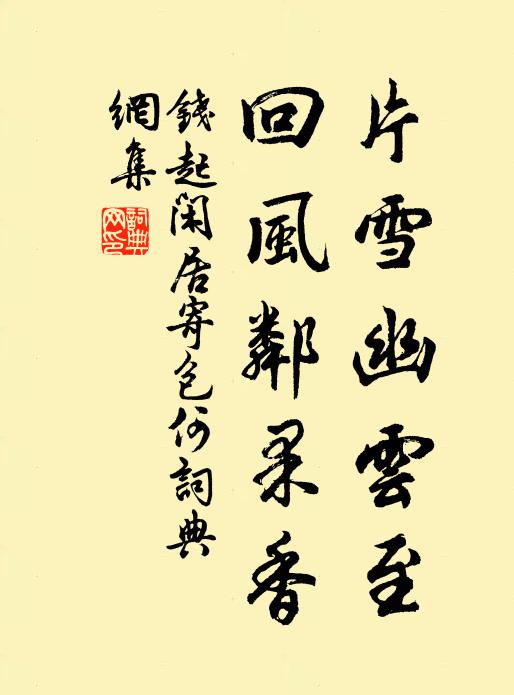 片雪幽雲至
回風鄰果香
錢起閑居寄包何詞典
網集
詞典網印